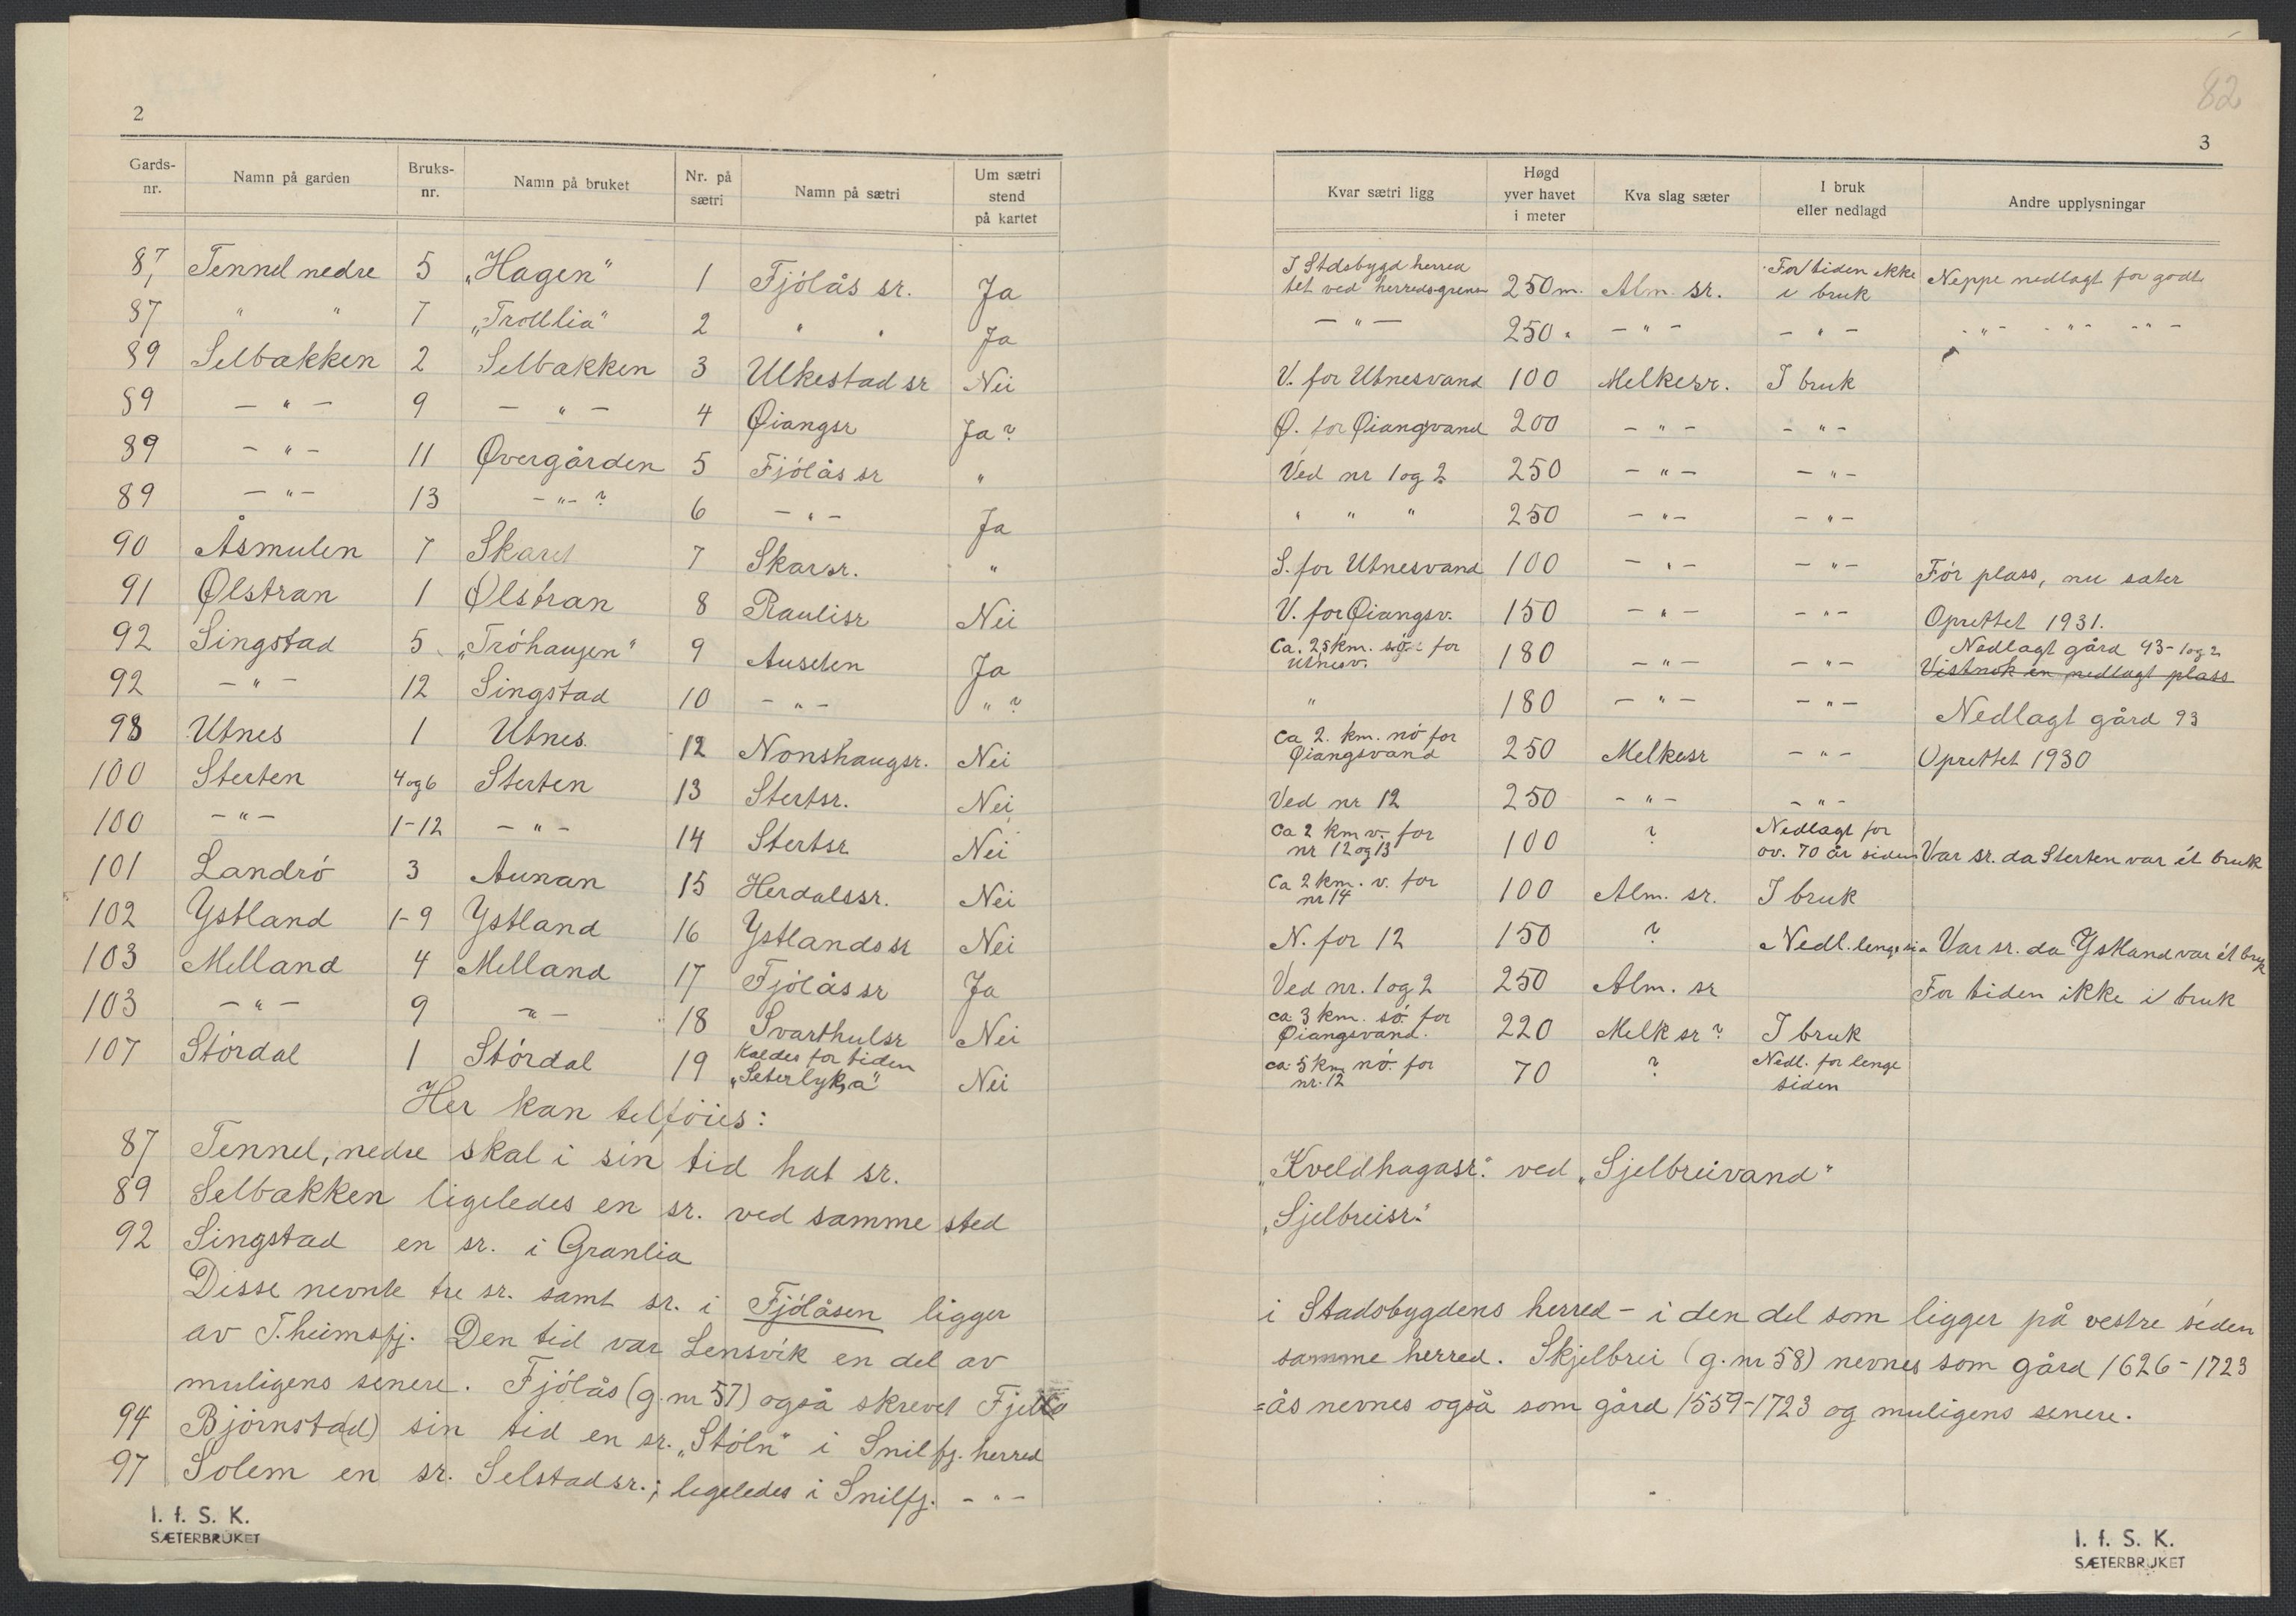 82
2
3
Gards-nr. Namn på garden Bruks-nr. Namn på bruket Nr. på sætri Namn på sætri Um sætri stend på kartet Kvar sætri ligg Høgd yver havet i meter Kva slag sæter I bruk eller nedlagd Andre upplysningar
87, Tennel nedre 5 „Hagen" 1 Fjölås sr. Ja I Stdsbygd herred tet ved herredsgrensen 250 m. Alm. sr. For tiden ikke i bruk Neppe nedlagt for godt
87 " " 7 „Trollia" 2 " " Ja — " — 250 " — " — — " — - " - - " - - " -
89 Selbakken 2 Selbakken 3 Ulkestad sr Nei V. for Utnesvand 100 Melkesr. I bruk
89 — " — 9 — " — 4 Øiangsr Ja? Ø. for Øiangvand 200 — " — — " —
89 — " — 11 Øvergården 5 Fjölås sr " Ved nr 1 og 2 250 — " — — " —
89 — " — 13 — " — ? 6 — " — Ja " " " 250 — " — — " —
90 Åsmulen 7 Skaret 7 Skarsr. " S. for Utnesvand 100 — " — — " — Før plass, nu sæter
91 Ølstran 1 Ølstran 8 Raulisr Nei V. for Øiangsv. 150 — " — — " — Oprettet 1931.
92 Singstad 5 „Tröhaugen" 9 Auseten Ja Ca. 2,5 km. sö for Utnesv. 180 — " — — " — Nedlagt gård 93 - 1 og 2 Vistnok en nedlagt plass
92 — " — 12 Singstad 10 — " — " ? " 180 — " — — " — Nedlagt gård 93
98 Utnes 1 Utnes 12 Nonshaugsr. Nei Ca 2. km. nö for Øiangsvand 250 Melkesr — " — Oprettet 1930
100 Sterten 4 og 6 Sterten 13 Stertsr. Nei Ved nr 12 250 — " — — " —
100 — " — 1-12 — " — 14 Stertsr Nei Ca 2 km v. for nr 12 og 13 100 ? Nedlagt for ov. 70 år siden Var sr. da Sterten var ét bruk
101 Landrö 3 Aunan 15 Herdalssr. Nei Ca 2 km. v. for nr 14 100 Alm. sr. I bruk
102 Ystland 1-9 Ystland 16 Ystlandssr Nei N. for 12 150 ? Nedl. lenge si- Var sr. da Ystland var ét bruk
103 Melland 4 Melland 17 Fjölås sr Ja Ved nr. 1 og 2 250 Alm. sr For tiden ikke i bruk
103 — " — 9 — " — 18 Svarthulsr Nei ca 3 km. sö. for Øiangsvand. 220 Melk sr? I bruk
107 Stördal 1 Stördal 19 Kaldes for tiden „Seterlykja" Nei ca. 5 km nö. for nr. 12 70 ? Nedl. for lenge siden
Her kan tilföies:
87 Tennel, nedre skal i sin tid hat sr. „Kveldhagasr." ved „Sjelbreivand"
89 Selbakken ligeledes en sr. ved samme sted „Sjelbreisr."
92 Singstad en sr. i Granlia
Disse nevnte tre sr. samt sr. i Fjölåsen ligger i Stadsbygdens herred - i den del som ligger på vestre siden
av T.heimsfj. Den tid var Lensvik en del av samme herred. Skjelbrei (g. nr 58) nevnes som gård 1626-1723
muligens senere. Fjölås (g. nr 57) også skrevet Fjell =ås nevnes også som gård 1559-1723 og muligens senere.
94 Björnsta(d) sin tid en sr. „Stöln" i Snilfj. herred
97 Solem en sr. Selstadsr.; ligeledes i Snilfj. - " -
I. f. S. K.
SÆTERBRUKET
I. f. S. K.
SÆTERBRUKET